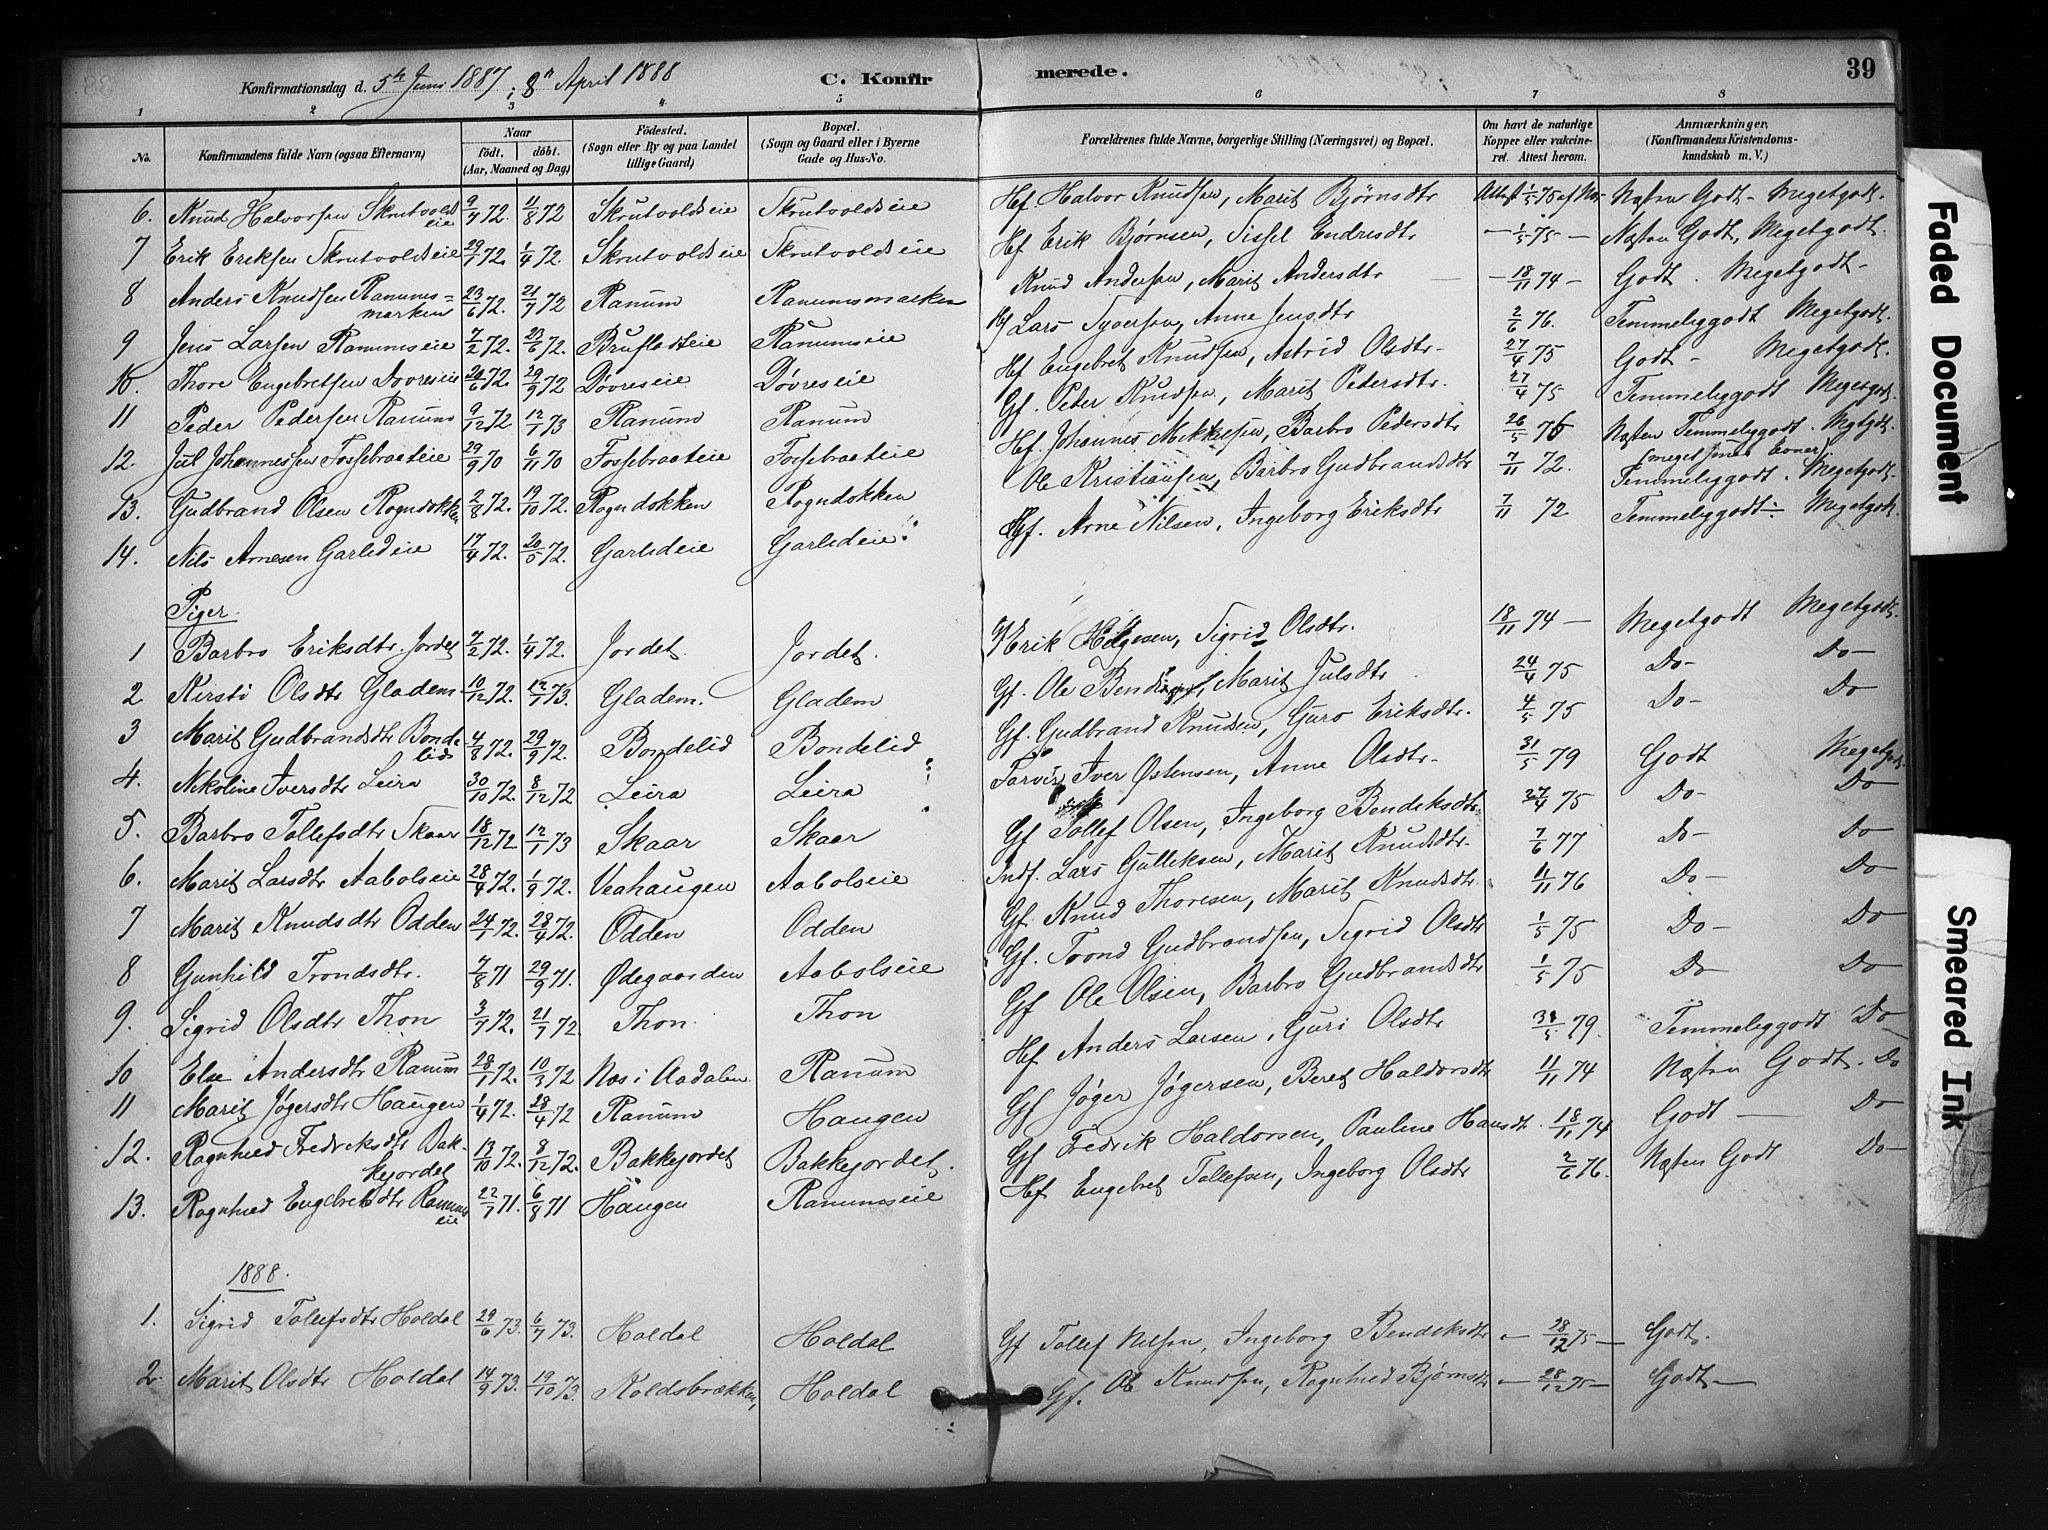 Konfirmationsdag d. 5te Juni 1887 ; 8de April 1888 C. Konfirmerede. 39
1 2 3 4 5 6 7 8
No. Konfirmandens fulde Navn (ogsaa Efternavn) Naar født, døbt. (Aar, Maaned og Dag) Fødested. (Sogn eller By og paa Landet tillige Gaard) Bopæl. (Sogn og Gaard eller i Byerne Gade og Hus-No. Forældrenes fulde Navne, borgerlige Stilling (Næringsvei) og Bopæl. Om havt de naturlige Kopper eller vakcineret. Attest herom. Anmærkninger. (Konfirmandens Kristendomskundskab m. V.)
6. Knud Halvorsen Skrutvoldseie 9/4 72. 11/8 72 Skrutvoldseie Skrutvoldseie Hf Halvor Knudsen, Marit Bjørnsdtr Attest 1/5 75 af Næs Næsten Godt - Megetgodt.
7 Erik Eriksen Skrutvoldseie 29/1 72. 1/4 72. Skrutvoldseie Skrutvoldseie Hf Erik Bjørnsen, Sissel Endresdtr - 1/5 75 - Næsten Godt, Megetgodt.
8 Anders Knudsen Ranumsmarken 23/6 72. 21/7 72 Ranum Ranumsmarken Knud Andersen, Marit Andersdtr - 18/11 74 - Godt. Megetgodt -
9 Jens Larsen Ranumseie 7/2 72. 23/6 72. Brufladteie Ranumseie Lars Syversen, Anne Jensdtr 2/6 76. Temmeliggodt Megetgodt.
10. Thore Engebretsen Dovreseie 20/6 72. 29/9 72 Døvreseie Døvreseie Hf Engebret Knudsen, Astrid Olsdtr - 27/4 75 Godt - Megetgodt.
11 Peder Pedersen Ranum 9/12 72 12/1 73 Ranum Ranum Gf. Peder Knudsen, Marit Pedersdtr. 27/4 75 Temmeliggodt Megetgodt
12. Jul Johannessen Fossebraateie 29/9 70 6/11 70 Fossebraateie Fossebraateie Hf. Johannes Mikkelsen, Barbro Pedersdtr 26/5 76 Næsten Temmeliggodt. Mgtgdt.
13. Gudbrand Olsen Rogndokken 2/8 72. 19/10 72. Rogndokken Rogndokken Ole Kristiansen, Barbro Gudbrandsdtr 7/11 72. Temmeliggodt. Megetgodt.
14. Nils Arnesen Garlideie 17/4 72. 20/5 72. Garlideie Garlideie Gf. Arne Nilsen, Ingeborg Eriksdtr 7/11 72 Temmeliggodt Megetgodt.
Piger.
1 Barbro Eriksdtr. Jordet 7/2 72. 1/4 72. Jordet. Jordet. Gf Erik Helgesen, Sigrid Olsdtr. 18/11 74 - Megetgodt Megetgodt.
2 Kirsti Olsdtr Gladem 10/12 72. 12/1 73. Gladem. Gladem Gf. Ole Bendiksen, Marit Julsdtr 24/4 75 Do - Do -
3 Marit Gudbrandsdtr Bondelid 4/8 72. 29/9 72. Bondelid Bondelid Gf. Gudbrand Knudsen, Guro Eriksdtr. 4/5 75 Do - Do
4. Nikoline Iversdtr Leira 30/10 72. 8/12 72. Leira Leira Iver Østensen, Anne Olsdtr - 31/5 79 Godt Megetgodt.
5. Barbro Tollefsdtr Skaar 18/12 72 12/1 73 Skaar Skaar Gf Tollef Olsen, Ingeborg Bendiksdtr. 27/4 75 Do - Do
6. Marit Larsdtr Aabolseie 28/4 72. 1/9 72. Veahaugen Aabolseie Indf. Lars Gulleksen, Marit Knudsdtr - 7/6 77 Do - Do
7 Marit Knudsdtr Odden 24/1 72. 28/4 72. Odden Odden Gf. Knud Thoresen, Marit Knudsdtr. 11/11 76 Do - Do
8 Gunhild Trondsdtr. 7/8 71 29/9 71. Ødegaarden Aabolseie Gf. Trond Gudbrandsen, Sigrid Olsdtr 1/5 75 Do - Do
9. Sigrid Olsdtr Thon 3/7 72. 21/7 72. Thon Thon Gf Ole Olsen, Barbro Gudbrandsdtr 1/5 75 Do - Do -
10 Else Andersdtr Ranum 28/1 72. 10/3 72 Næs i Aadalen Ranum Hf. Anders Larsen, Guri Olsdtr 31/5 79. Temmeliggodt Do -
11 Marit Jøgersdtr Haugen 1/4 72. 28/4 72 Ranum Haugen Gf Jøger Jøgersen, Berit Haldorsdtr 11/11 74 Næsten Godt. Do
12. Ragnhild Fredriksdtr Bakkejordet 13/10 72. 8/12 72. Bakkejordet Bakkejordet. Gf Fredrik Haldorsen, Pauline Hansdtr. 18/11 74 Godt - Do
13. Ragnhild Engebretsdtr Ranumseie 22/7 71. 6/8 71 Haugen Ranumseie Hf. Engebret Tollefsen, Ingeborg Olsdtr 2/6 76. Næsten Godt Do -
1888.
1. Sigrid Tollefsdtr Holdal 29/6 73. 6/7 73. Holdal Holdal Gf Tollef Nilsen, Ingeborg Bendiksdtr - 28/12 75 - Godt.
2. Marit Olsdtr Holdal 14/9 73. 19/10 73. Koldsbrækken, Holdal Gf. Ole Knudsen, Ragnhild Bjørnsdtr - 28/12 75 - Godt -
Faded Document
Smeared Ink